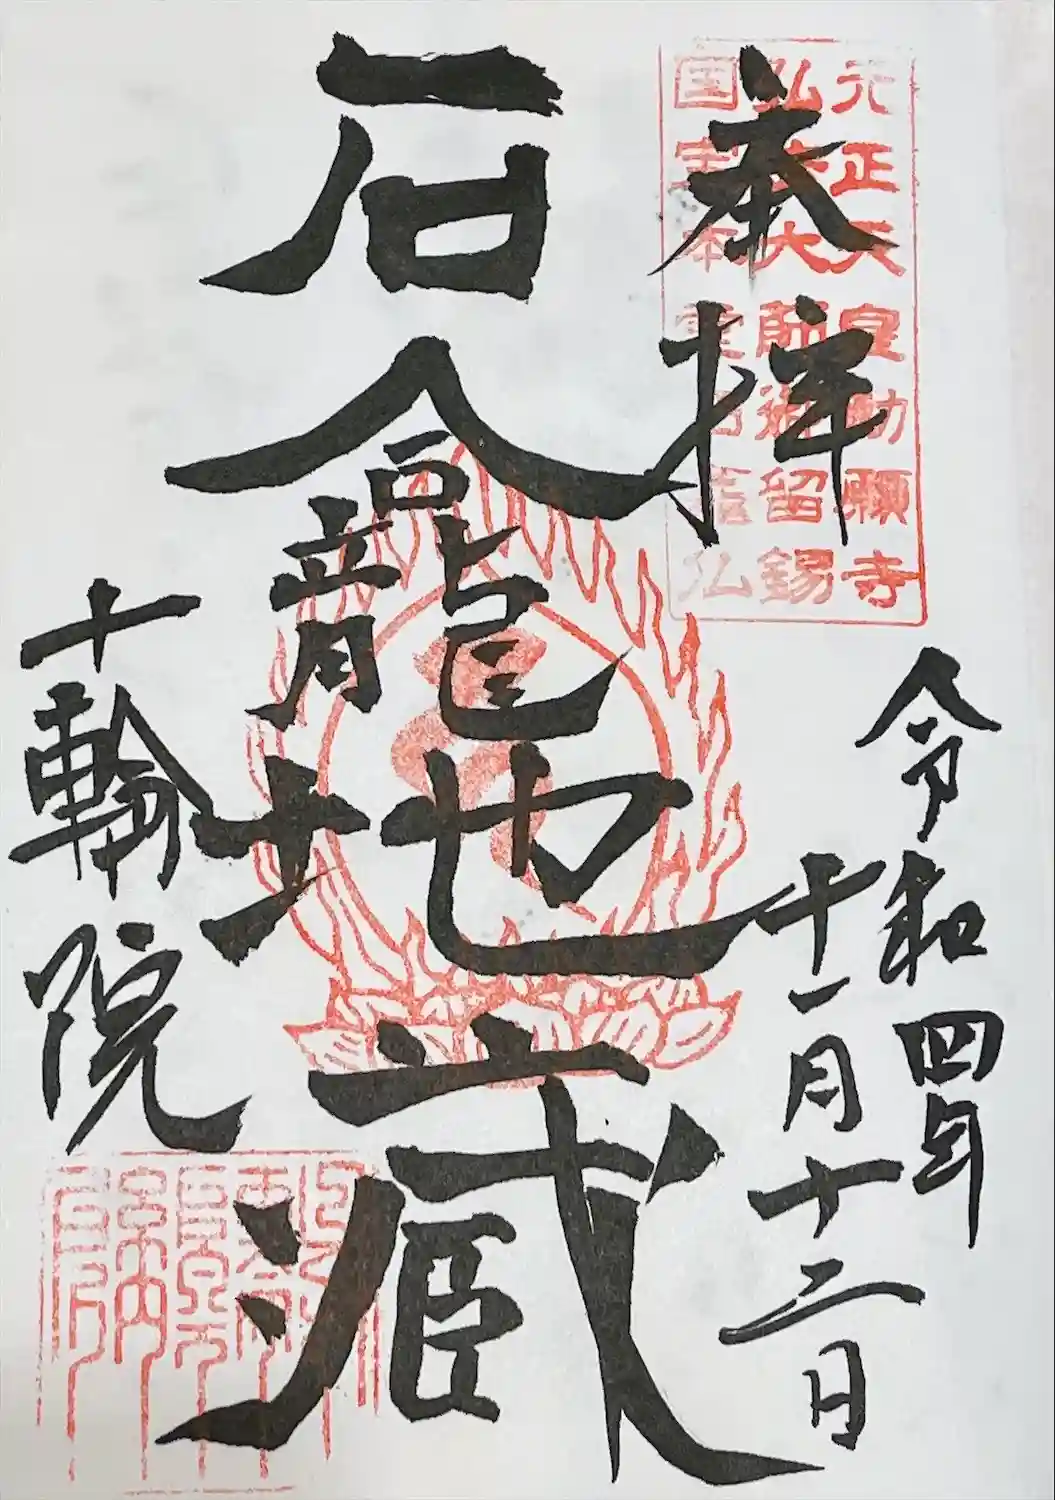 奉拝
元正天皇勅願寺
弘法大師御留錫
国宝本堂石龕仏
令和四年
十一月十二日
石龕地蔵
十輪院